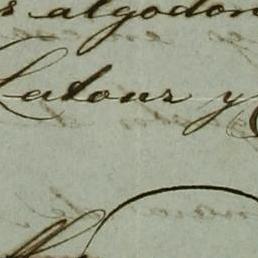 s algodon
Latour y